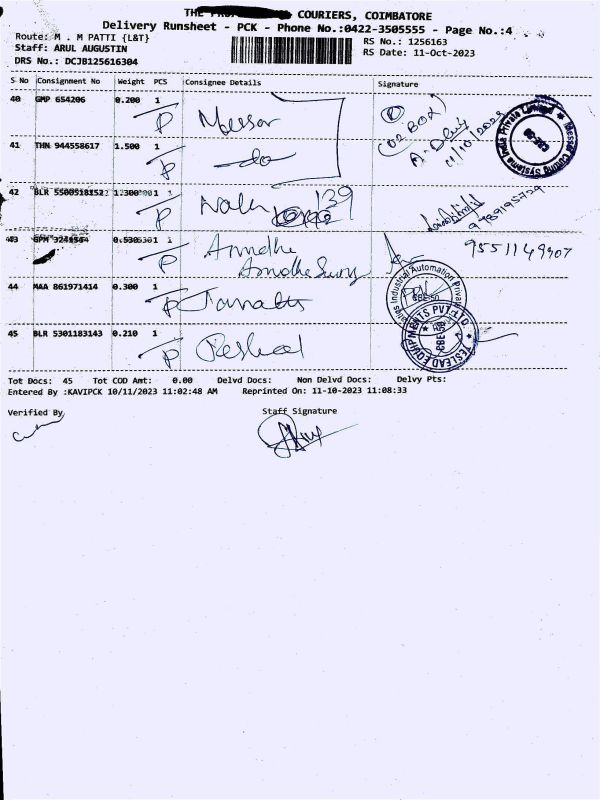 THE COURIERS, COIMBATORE
Delivery Runsheet - PCK - Phone No.:0422-3505555 - Page No.:4
Route: M . M PATTI {L&T}
RS No.: 1256163
Staff: ARUL AUGUSTIN
RS Date: 11-Oct-2023
DRS No.: DCJB125616304
S No Consignment No Weight PCS Consignee Details Signature
40 GMP 654206 0.200 1 Messer
(02 BOX)
11/10/2023
Messer Cutting Systems India Private Limited
41 THN 944558617 1.500 1 do
42 BLR 1 139
9789195729
43 1 Anudha
9551149907
44 MAA 861971414 0.300 1
Industrial Automation Private
45 BLR 5301183143 0.210 1 Teslead
TESLEAD EQUIPMENTS PVT LTD.
Tot Docs: 45 Tot COD Amt: 0.00 Delvd Docs: Non Delvd Docs: Delvy Pts:
Entered By :KAVIPCK 10/11/2023 11:02:48 AM Reprinted On: 11-10-2023 11:08:33
Verified By Staff Signature